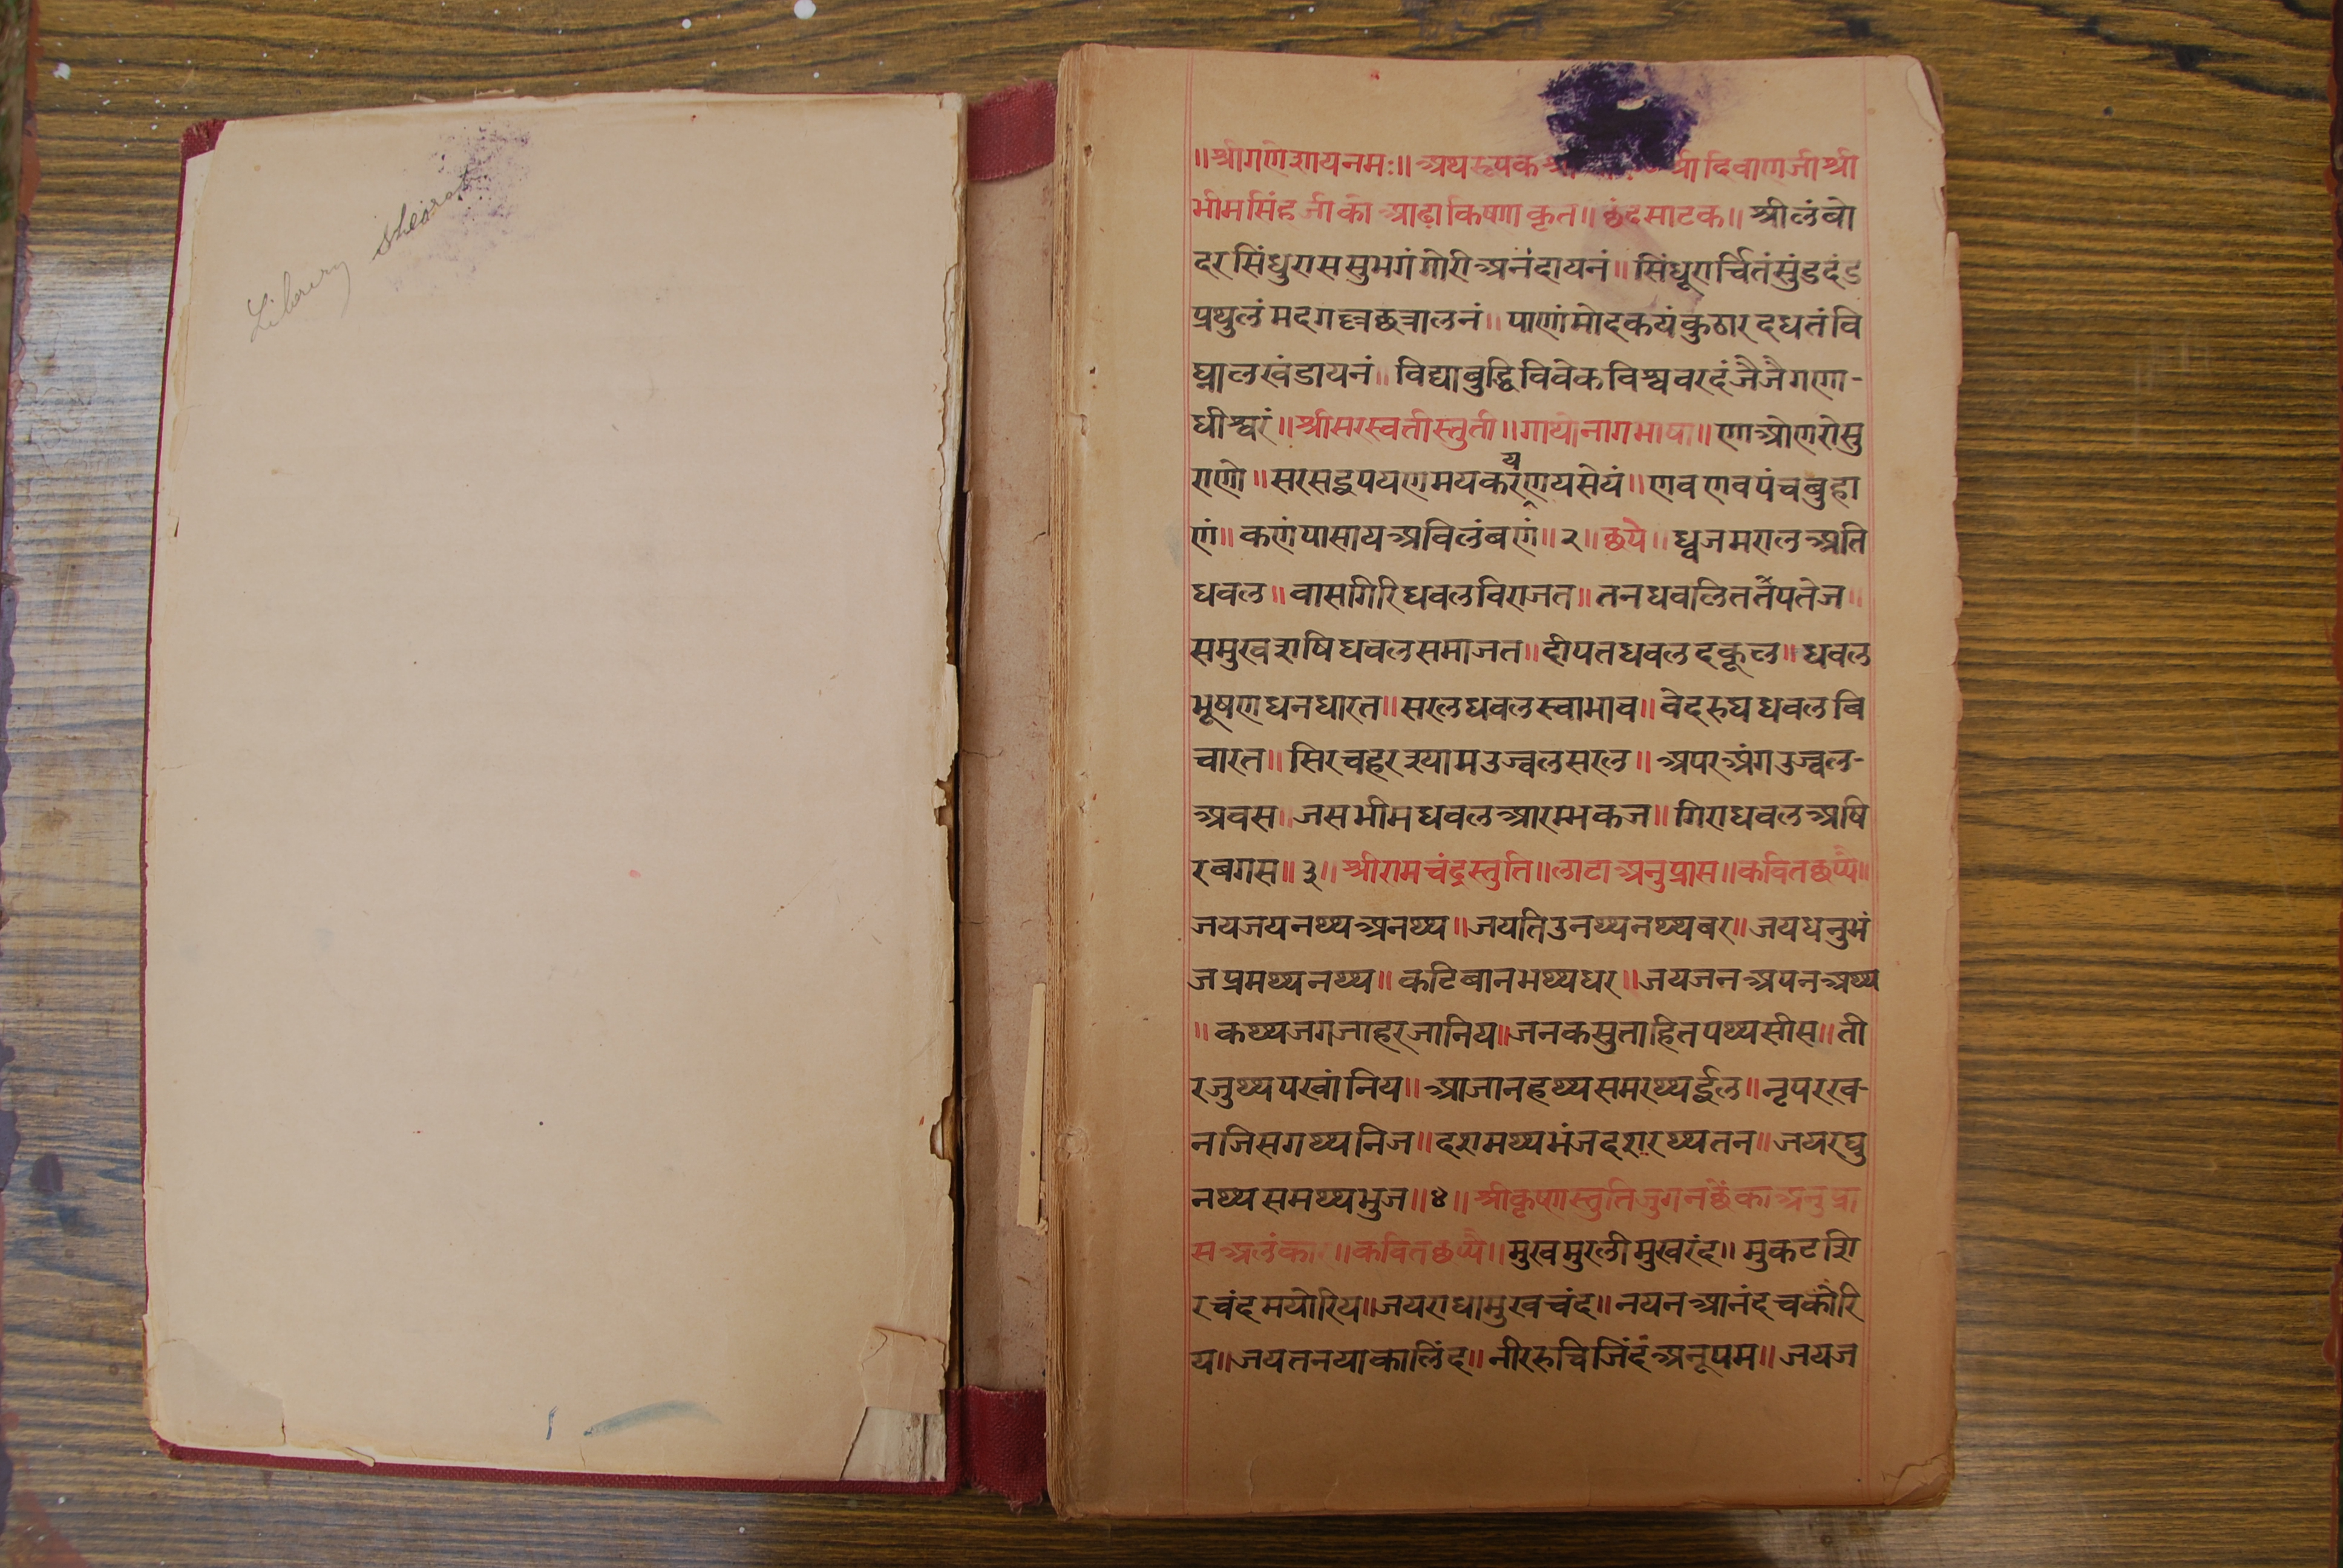 Library sheorat
॥श्रीगणेशायनमः॥ अथरूपक श्रीदिवाणजीश्री
भीमसिंहजीको आढाकिष्णाकृत॥ छंदसाटक॥ श्रीलंबो
दरसिंधुराससुभगंगोरीअनंदायनं॥ सिंधूरार्चितंसुंडदंड
प्रथुलंमदगन्द्दत्रालनं॥ पाणंमोदकयंकुठारदधतंवि
घ्नालखंडायनं॥ विद्याबुद्धिविवेकविश्ववरदंजैजैगणा-
धीश्वरं॥ श्रीसरस्वतीस्तुती॥ गाथोनागभाषा॥ णाओणरोसु
राणो॥ सरसद्दपयणमयकरंणयसेयं॥ णवणवपंचबुहा
णं॥ कणंपासायअविलंबणं॥२॥ छपे॥ ध्वजमरालअति
धवल॥ वासगिरिधवलविराजत॥ तनधवलिततेपतेज॥
समुखराषिधवलसमाजत॥ दीपतधवलदकूल॥ धवल
भूषणधनधारत॥ सरलधवलस्वाभाव॥ वेदरुघधवलबि
चारत॥ सिरचहरश्यामउज्वलसरल॥ अपरअंगउज्वल-
अवस॥ जसभीमधवलआरम्भकज॥ गिराधवलअषि
रबगस॥३॥ श्रीरामचंद्रस्तुति॥लाटाअनुप्रास॥कवितछप्पै॥
जयजयनथ्थअनथ्थ॥ जयतिउनथ्थनथ्थबर॥ जयधनुभं
जप्रमथ्थनथ्थ॥ कटिबानभथ्थधर॥ जयजनअपनअथ्थ
॥ कथ्थजगजाहरजानिय॥ जनकसुताहितपथ्थसीस॥ ती
रजुथ्थपखांनिय॥ आजानहथ्थसमरथ्थर्इल॥ नृपररव-
नजिसगथ्थनिज॥ दशमथ्थभंजदशरथ्थतन॥ जयरघु
नथ्थसमथ्थभुज॥४॥ श्रीकृष्णस्तुतिजुगनछेकाअनुप्रा
सअलंकार॥कवितछप्पै॥ मुखमुरलीमुखरंद॥ मुकटशि
रचंदमयोरिय॥ जयराधामुखचंद॥ नयनआनंदचकोरि
य॥ जयतनयाकालिंद॥ नीररुचिजिंदंअनूपम॥ जयज